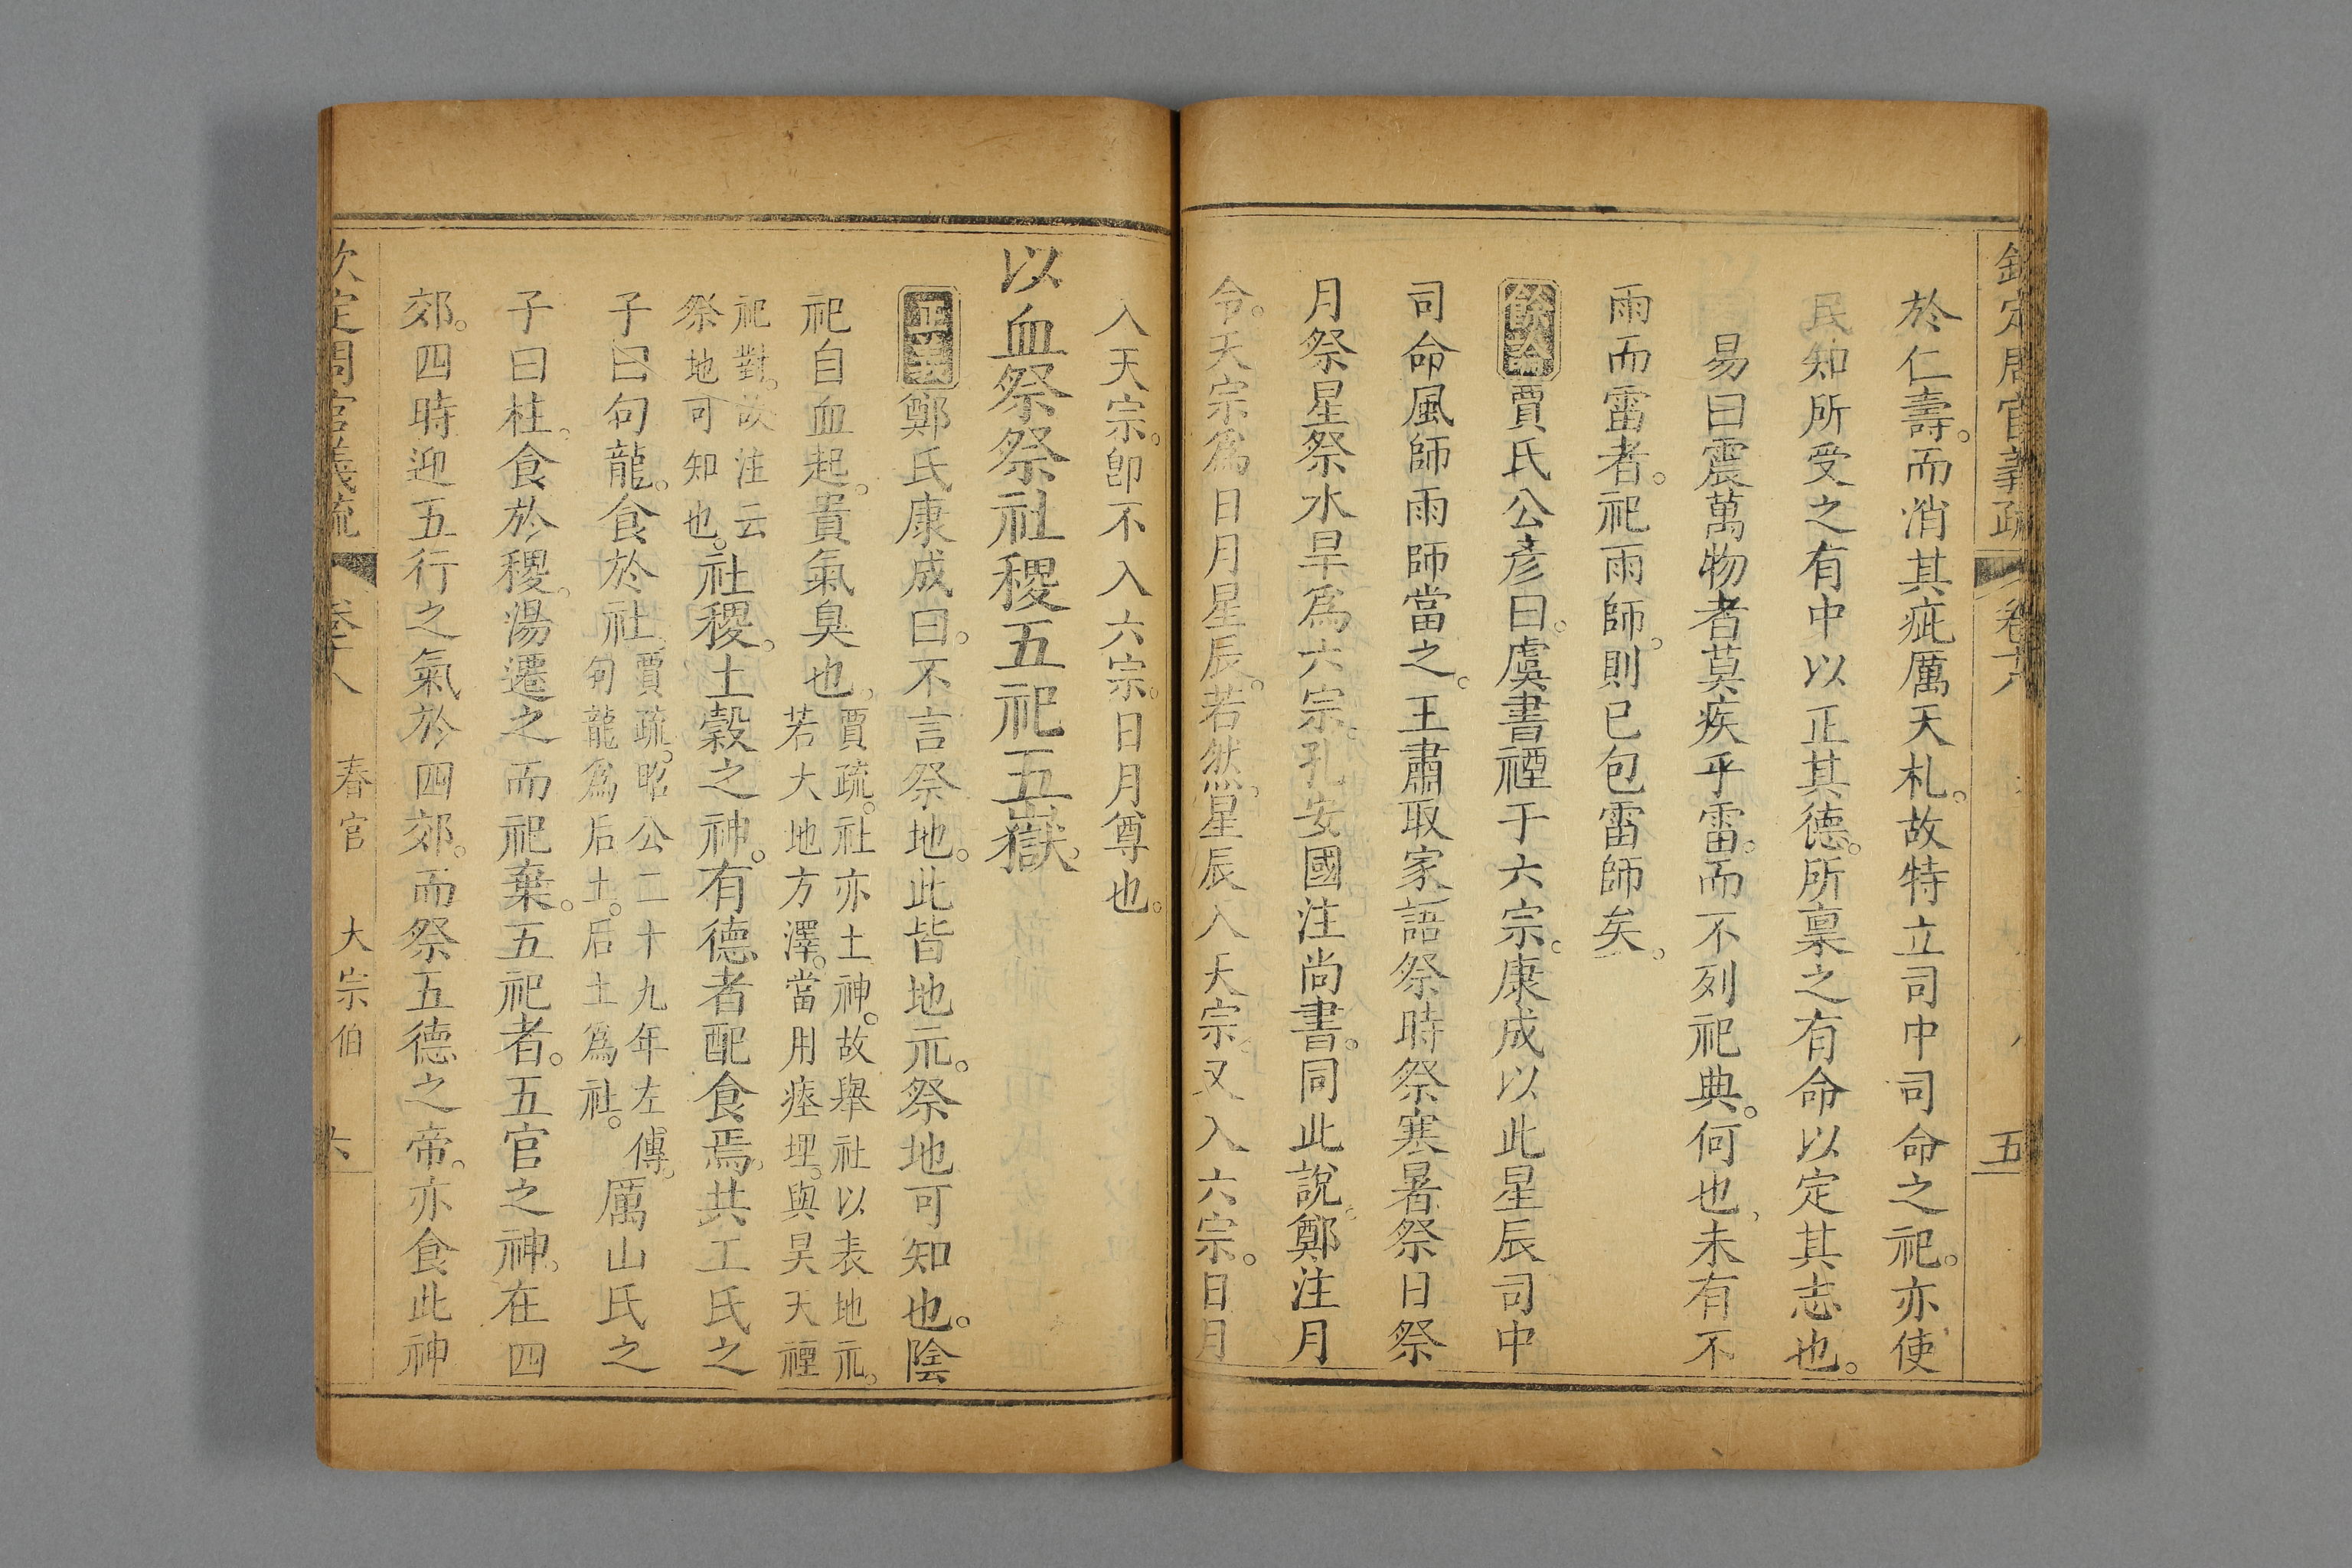 欽定周官義疏 卷十八 五
於仁壽。而消其疵厲夭札。故特立司中司命之祀。亦使
民知所受之有中以正其德。所稟之有命以定其志也。
易曰震萬物者莫疾乎雷。而不列祀典。何也、未有不
雨而雷者。祀雨師。則已包雷師矣。
餘論賈氏公彥曰。虞書禋于六宗。康成以此星辰司中
司命風師雨師當之。王肅取家語祭時祭寒暑祭日祭
月祭星祭水旱爲六宗。孔安國注尚書。同此說。鄭注月
令。天宗爲日月星辰。若然。星辰入天宗。又入六宗。日月
入天宗。卽不入六宗。日月尊也。
以血祭祭社稷五祀五嶽。
正義鄭氏康成曰。不言祭地。此皆地示。祭地可知也。陰
祀自血起。貴氣臭也、
賈疏。社亦土神。故舉社以表地示。
若大地方澤。當用瘞埋。與昊天禋
祀對。故注云
祭地可知也。
社稷。土穀之神。有德者配食焉。共工氏之
子曰句龍。食於社、
賈疏。昭公二十九年左傳。
句龍爲后土。后土爲社。
厲山氏之
子曰柱。食於稷。湯遷之而祀棄。五祀者。五官之神。在四
郊。四時迎五行之氣於四郊。而祭五德之帝。亦食此神
欽定周官義疏 卷十八 春官 大宗伯 六